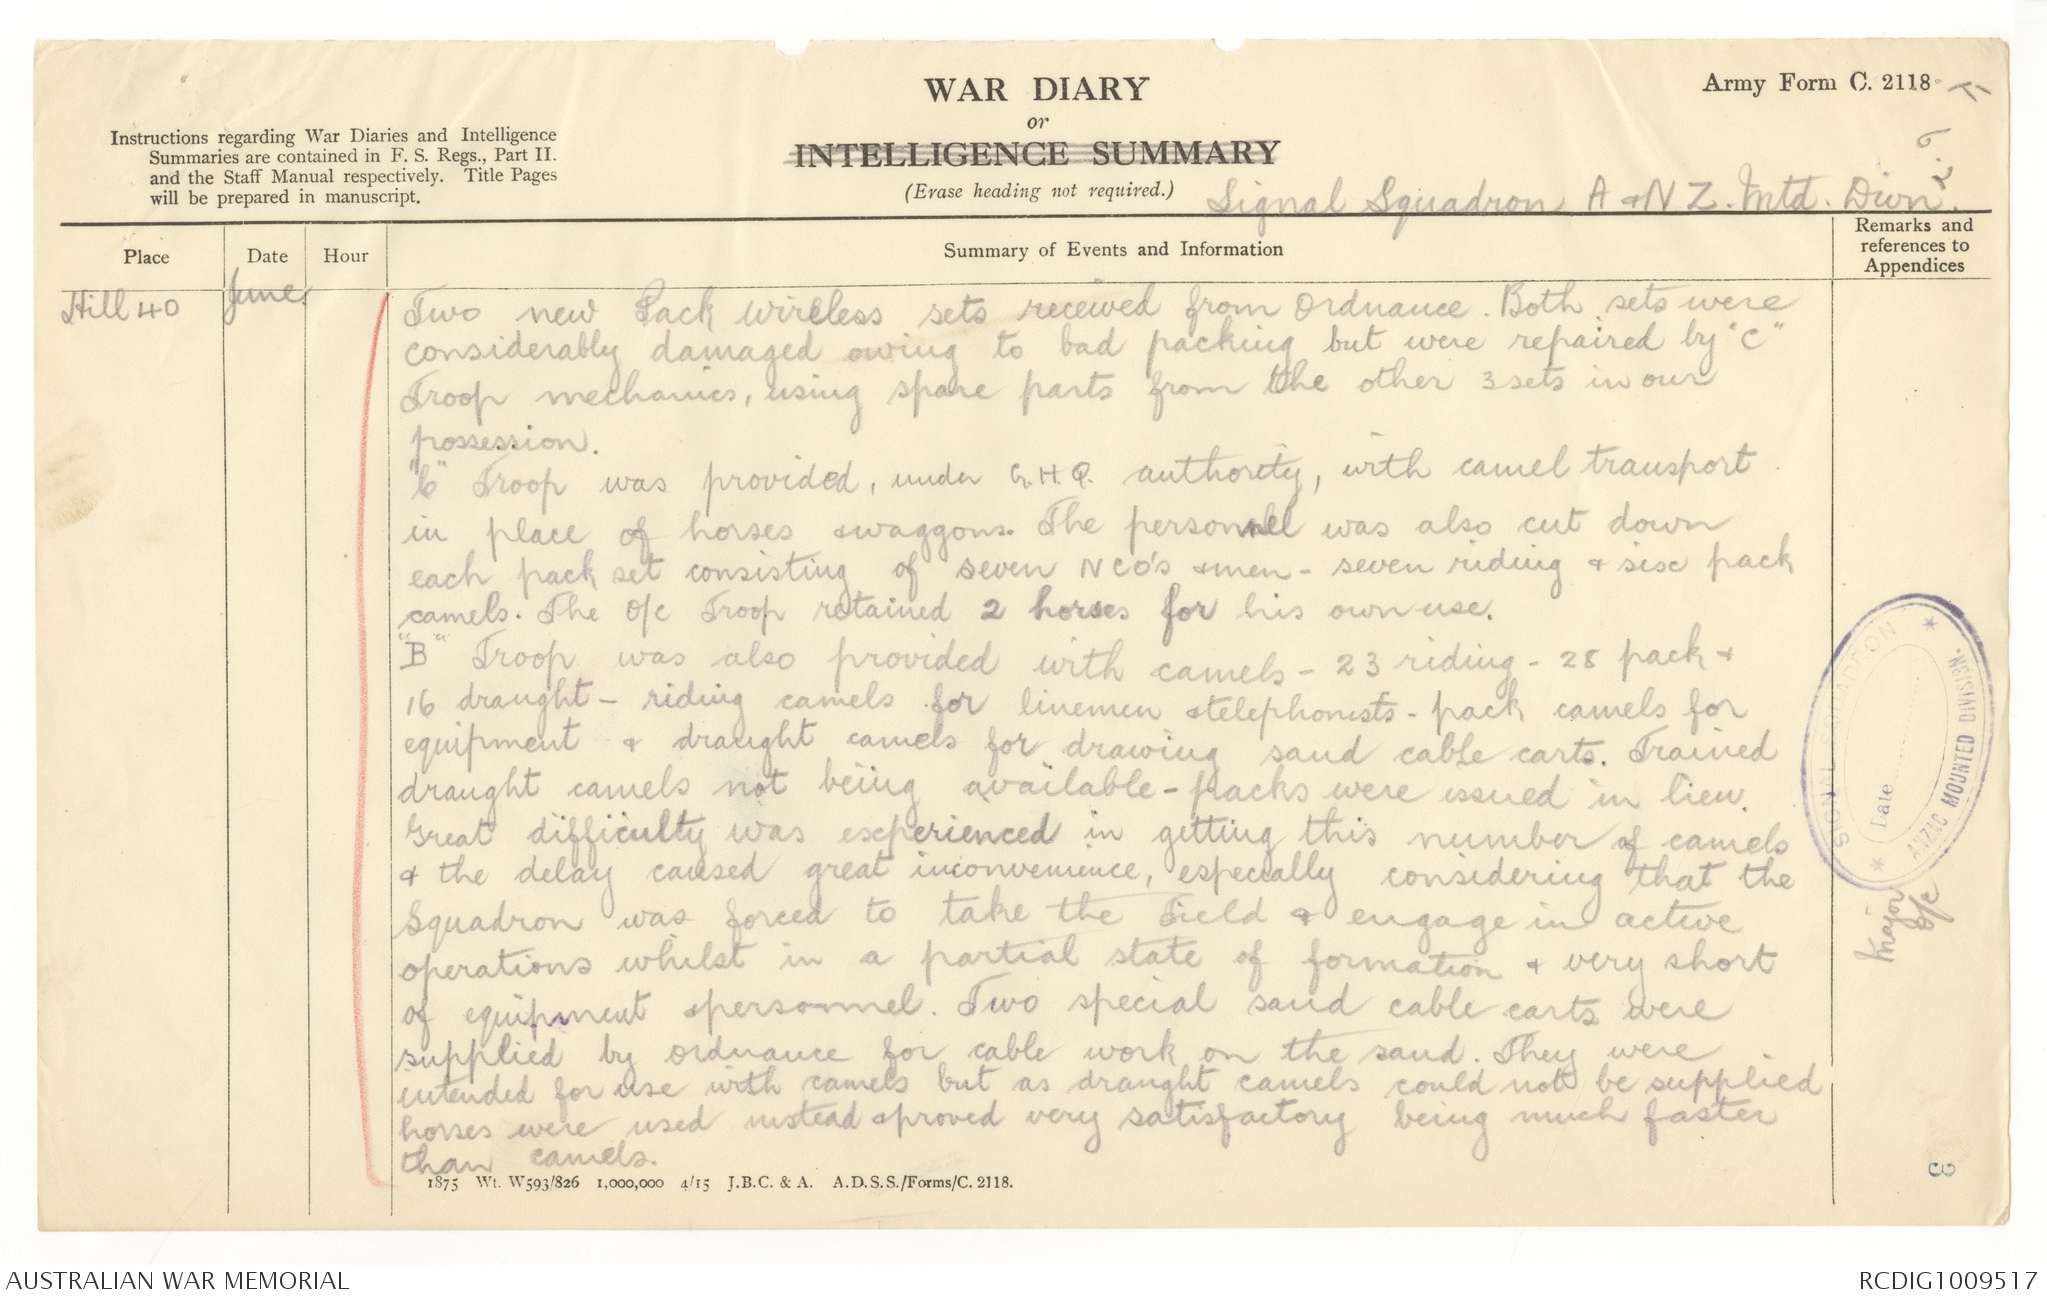 WAR DIARY
or
INTELLIGENCE SUMMARY
(Erase heading not required.)
Army Form C. 2118
Instructions regarding War Diaries and Intelligence
Summaries are contained in F. S. Regs., Part II.
and the Staff Manual respectively. Title Pages
will be prepared in manuscript.
Signal Squadron A & N Z. Mtd. Divn.
Place
Date
Hour
Summary of Events and Information
Remarks and
references to
Appendices
Hill 40
June
Two new Pack wireless sets received from Ordnance. Both sets were
considerably damaged owing to bad packing but were repaired by "C"
Troop mechanics, using spare parts from the other 3 sets in our
possession.
"C" Troop was provided, under G.H.Q. authority, with camel transport
in place of horses & waggons. The personnel was also cut down
each pack set consisting of seven NCO's & men - seven riding & six pack
camels. The O/c Troop retained 2 horses for his own use.
"B" Troop was also provided with camels - 23 riding - 28 pack &
16 draught - riding camels for linemen & telephonists - pack camels for
equipment & draught camels for drawing sand cable carts. Trained
draught camels not being available - packs were issued in lieu.
Great difficulty was experienced in getting this number of camels
& the delay caused great inconvenience, especially considering that the
Squadron was forced to take the Field & engage in active
operations whilst in a partial state of formation & very short
of equipment & personnel. Two special sand cable carts were
supplied by Ordnance for cable work on the sand. They were
intended for use with camels but as draught camels could not be supplied
horses were used instead & proved very satisfactory being much faster
than camels.
SIGNAL SQUADRON
Date
ANZAC MOUNTED DIVISION.
Major
O/c
3
1875 Wt. W593/826 1,000,000 4/15 J.B.C. & A. A.D.S.S./Forms/C. 2118.
AUSTRALIAN WAR MEMORIAL
RCDIG1009517